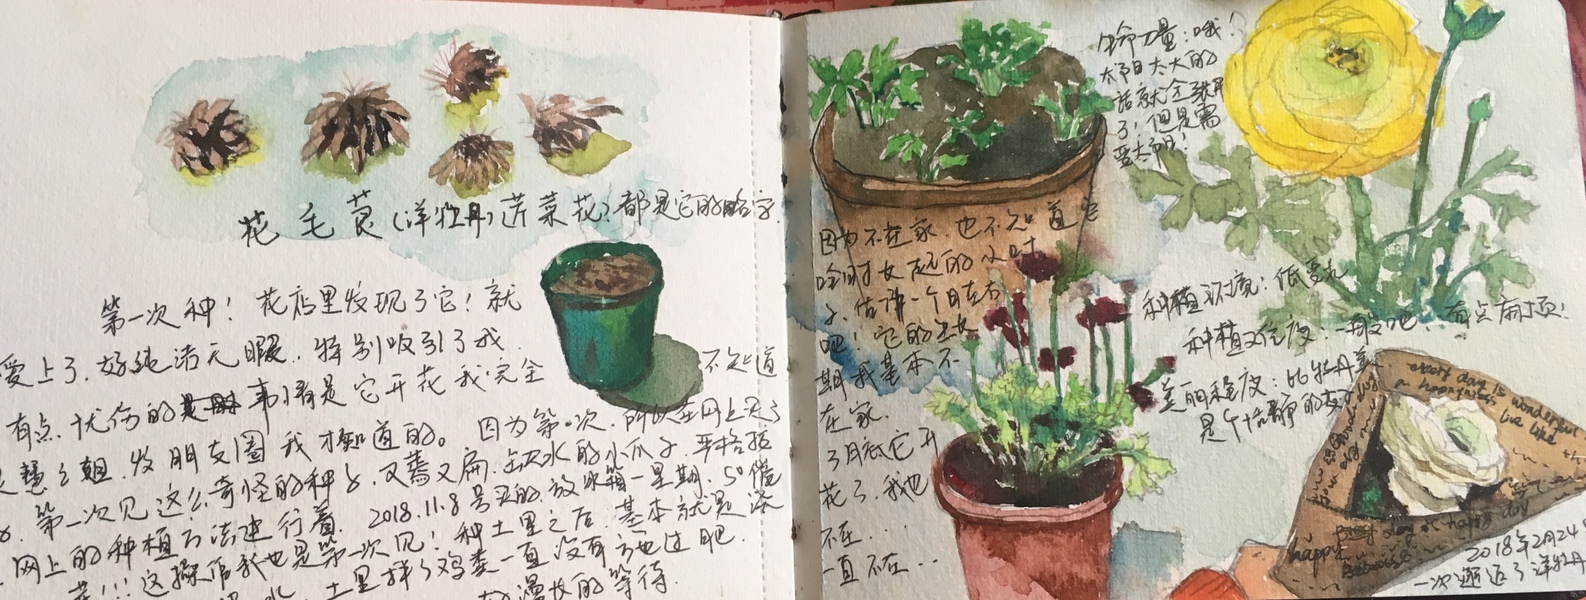 花毛茛(洋牡丹)芹菜花?都是它的名字
第一次种!花店里发现了它!就
爱上了.好纯洁无暇.特别吸引了我.
不知道
有点忧伤的事情是它开花我完全
慧之姐.发朋友圈我才知道的。因为第一次.所以在网上买了
第一次见这么奇怪的种子.又蔫又扁.缺水的小爪子.严格按
网上的种植方法进行着.2018.11.8号买的.放冰箱一星期.5°催
芽!!!这操作我也是第一次见!种土里之后.基本就是浇
水.土里拌了鸡粪一直没有
漫长的等待.
生命力量:哦?
太阳太大的
话就全
了!但是需
要太阳!
因为不在家.也不知道它
啥时发起的小叶
子.估计一个月左右
吧!它的
期我基本不
在家.
3月底它开
花了.我也
不在...
一直不在...
种植环境:低
种植难度:一般吧.有点麻烦!
美丽程度:比牡丹
是个恬静的
every day is wonderful
happy
day
2018年2月24
一次邂逅了洋牡丹